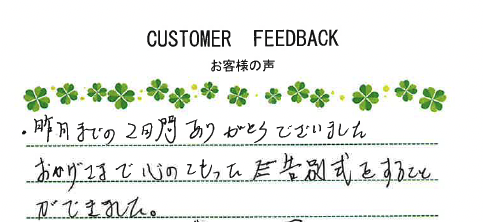 CUSTOMER FEEDBACK
お客様の声
・昨日までの2日間ありがとうございました
おかげさまで心のこもった告別式をすること
ができました。